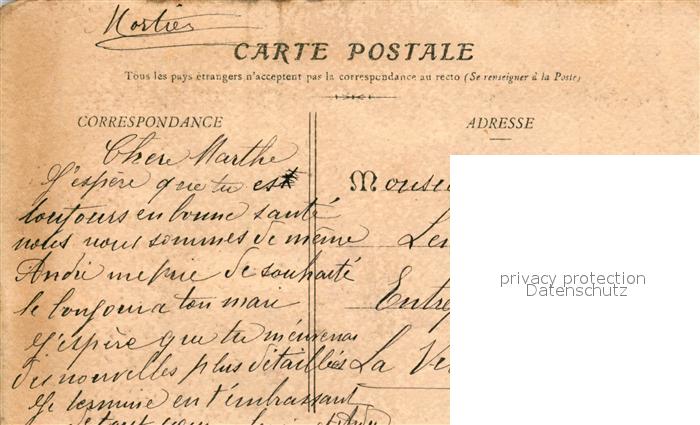 Mortier
CARTE POSTALE
Tous les pays étrangers n'acceptent pas la correspondance au recto (Se renseigner à la Poste)
CORRESPONDANCE
Chere Marthe
J'espère que tu est
toujours en bonne santé
nous nous sommes de même
André me prie de souhaité
le bonjour a ton mari
J'espère que tu
des nouvelles plus détaillées
Je termine en t'embrassant
de tout
ADRESSE
Monsieu
Len
Entre
La Ve
privacy protection
Datenschutz